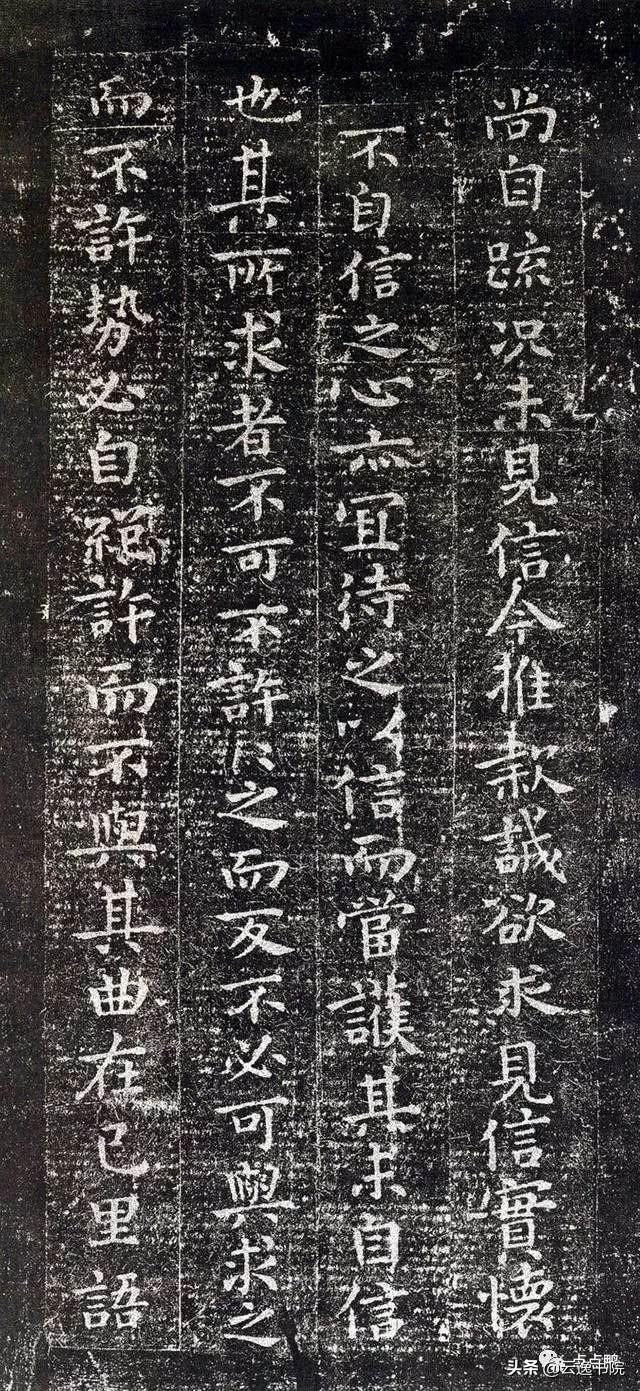 尚自踈况未見信今推款誠欲求見信實懷
不自信之心亦冝待之以信而當護其未自信
也其所求者不可不許〻之而反不必可與求之
而不許勢必自絕許而不與其曲在己里語
点点鸭
头条 @云逸书院